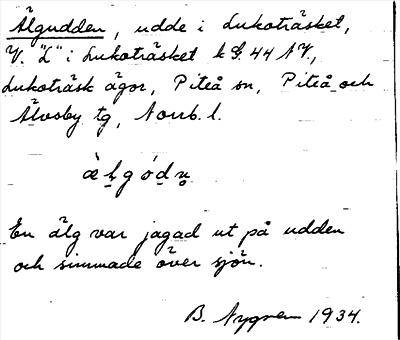 Älgudden, udde i Lukoträsket,
V. "L" i Lukoträsket k S. 44 NV,
Lukoträsk ägor, Piteå sn, Piteå och
Älvsby tg, Norrb. l.
En älg var jagad ut på udden
och simmade över sjön.
B. Nygren 1934.